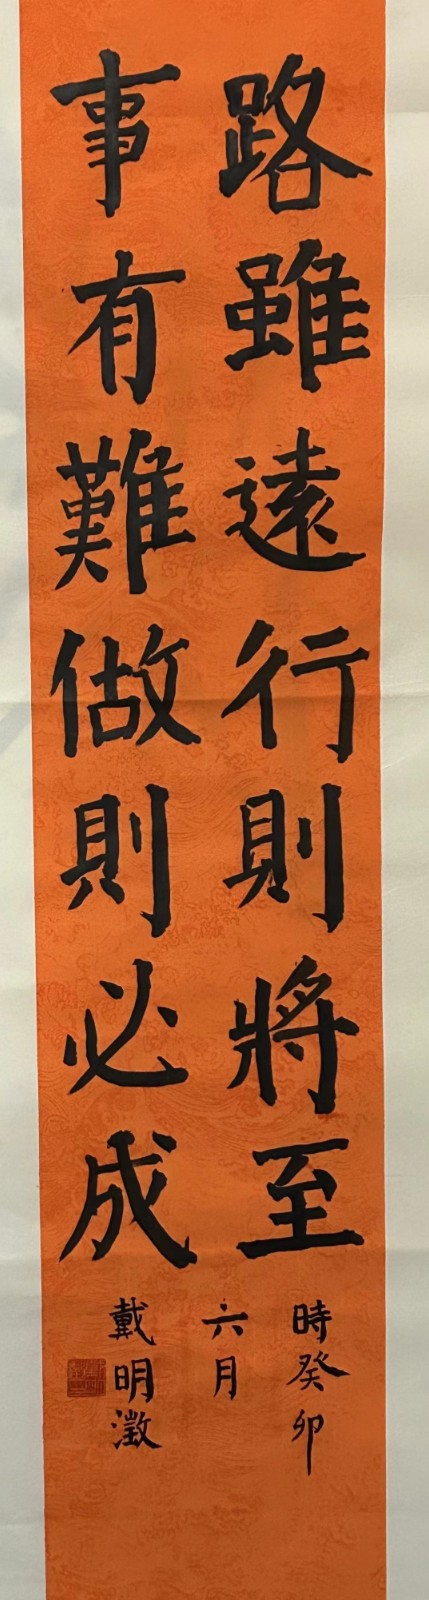 路雖遠行則將至
事有難做則必成
時癸卯
六月
戴明澂